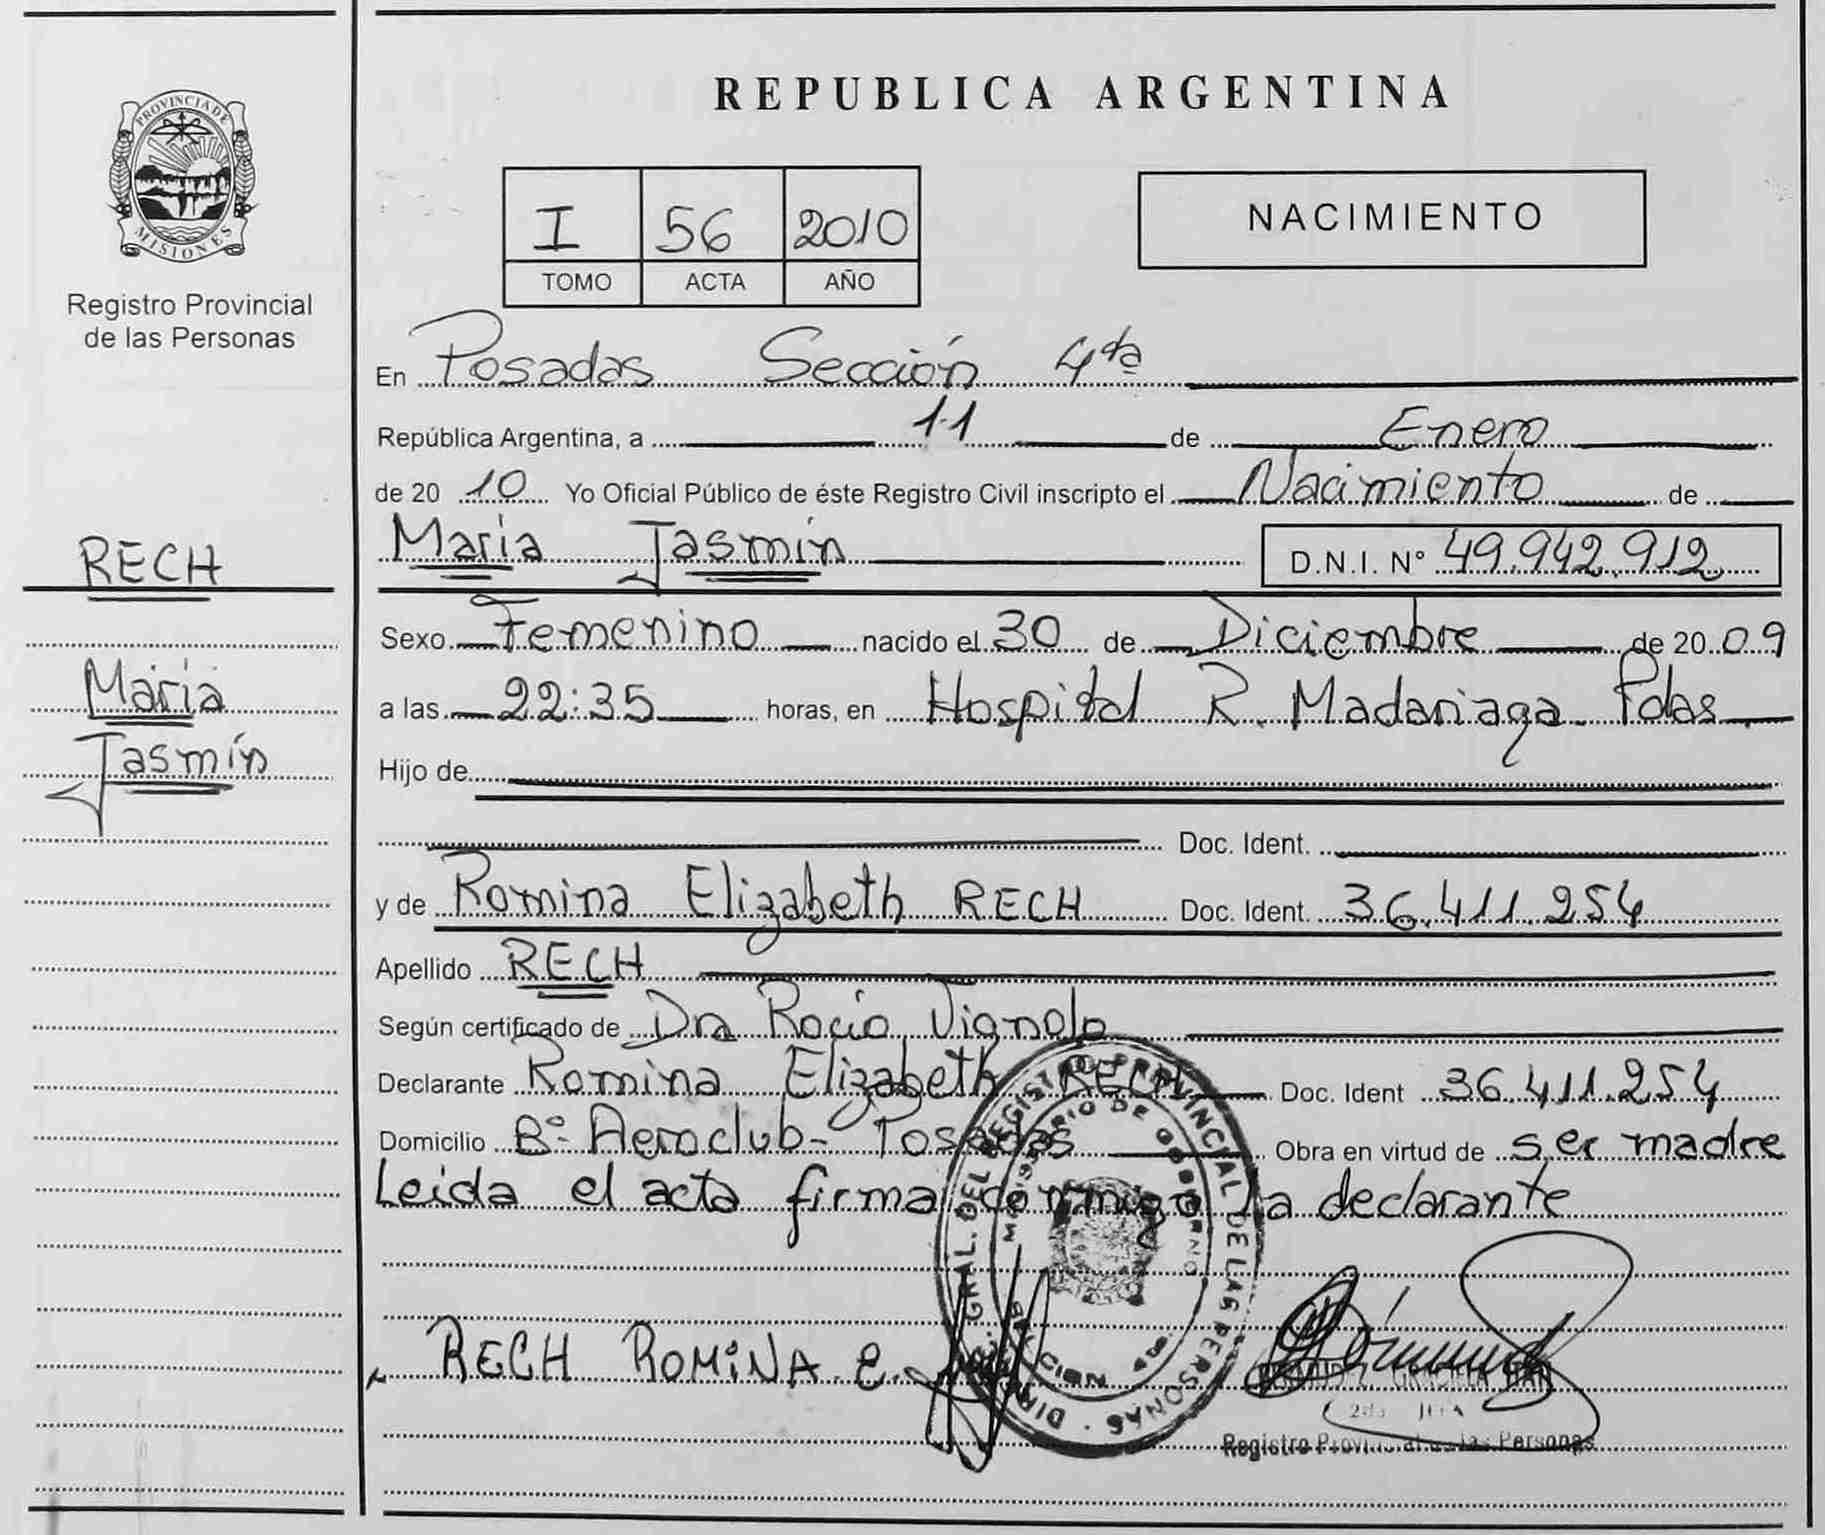 REPUBLICA ARGENTINA
PROVINCIA DE
MISIONES
Registro Provincial
de las Personas
I 56 2010
TOMO ACTA AÑO
NACIMIENTO
En Posadas Sección 4ta
República Argentina, a 11 de Enero
de 2010 Yo Oficial Público de éste Registro Civil inscripto el Nacimiento de
María Jasmín D.N.I. N° 49.942.912
RECH
María
Jasmín
Sexo Femenino nacido el 30 de Diciembre de 2009
a las 22:35 horas, en Hospital R. Madariaga Pdas
Hijo de
Doc. Ident.
y de Romina Elizabeth RECH Doc. Ident. 36.411.254
Apellido RECH
Según certificado de Dra Rocio Vignolo
Declarante Romina Elizabeth RECH Doc. Ident 36.411.254
Domicilio B° Aeroclub- Posadas Obra en virtud de ser madre
Leida el acta firma conmigo la declarante
DIR. GRAL. DEL REGISTRO PROVINCIAL DE LAS PERSONAS
MINISTERIO DE GOBIERNO
RECH ROMINA E.
GRACIELA
Registro Provincial de las Personas